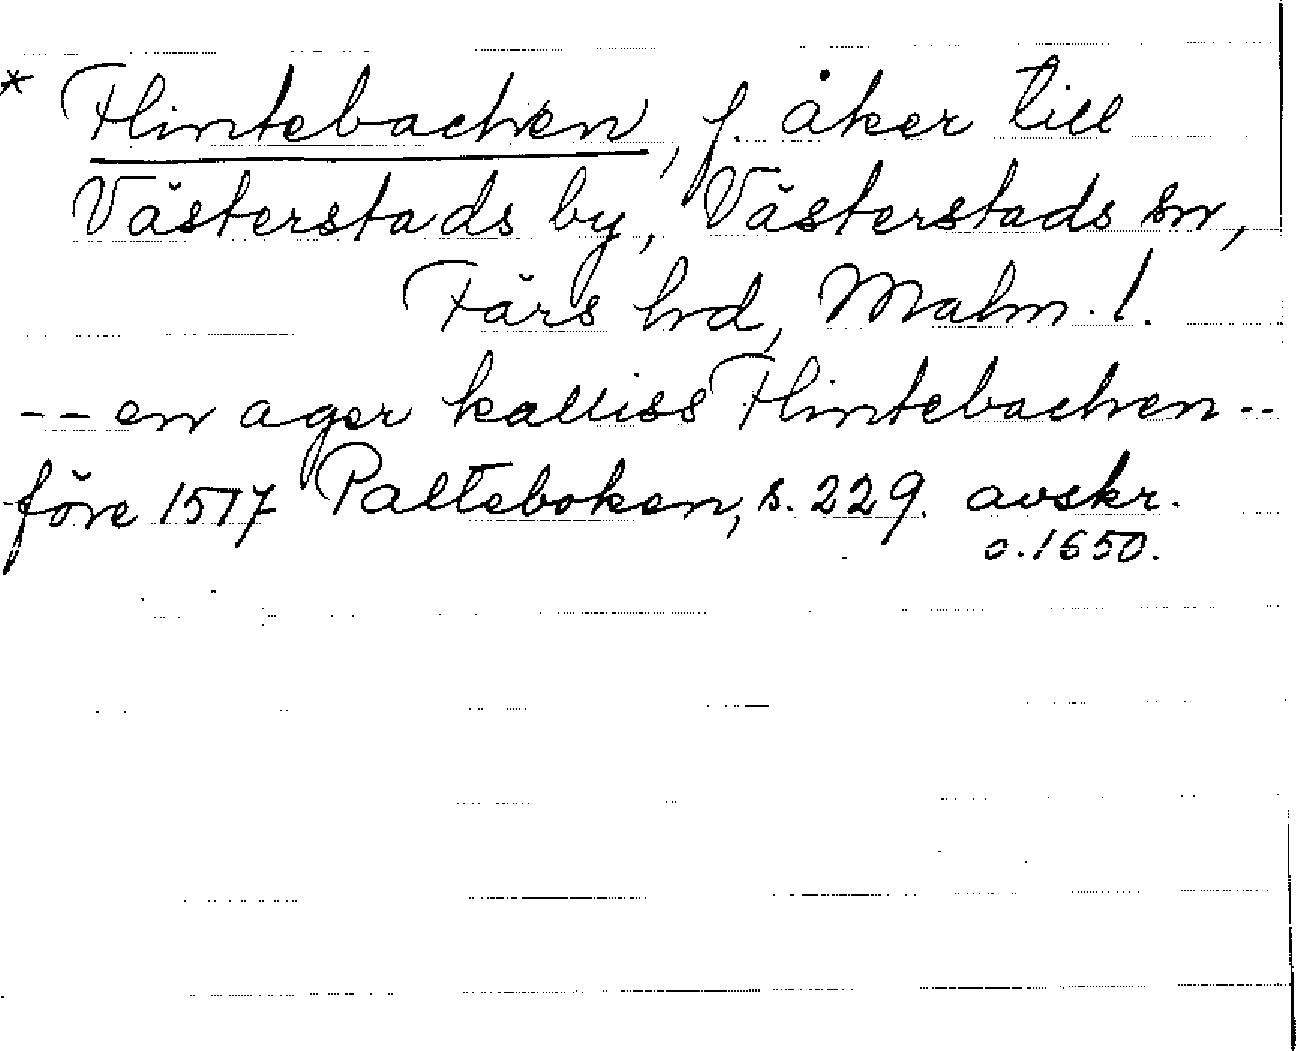 * Flintebachen, f. åker till
Västerstads by, Västerstads sn,
Färs hd, Malm. l.
-- en ager kalliss Flintebachen --
före 1517 Palteboken, s. 229. avskr.
o. 1650.